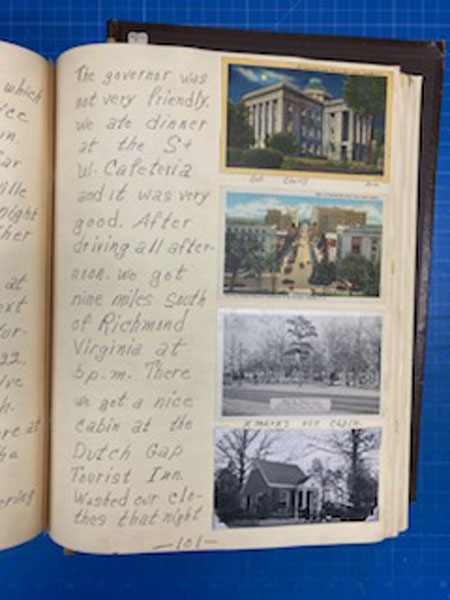 which
ice
un.
ar
ille
night
ther
at
ext
for-
22.
ive
h-
re at
ha
ering
The governor was
not very friendly.
we ate dinner
at the S+
W. Cafeteria
and it was very
good. After
driving all after-
noon. we got
nine miles south
of Richmond
Virginia at
5p.m. There
we got a nice
cabin at the
Dutch Gap
Tourist Inn.
Washed our clo-
thes that night
—101—
X MARKS OUR CABIN.